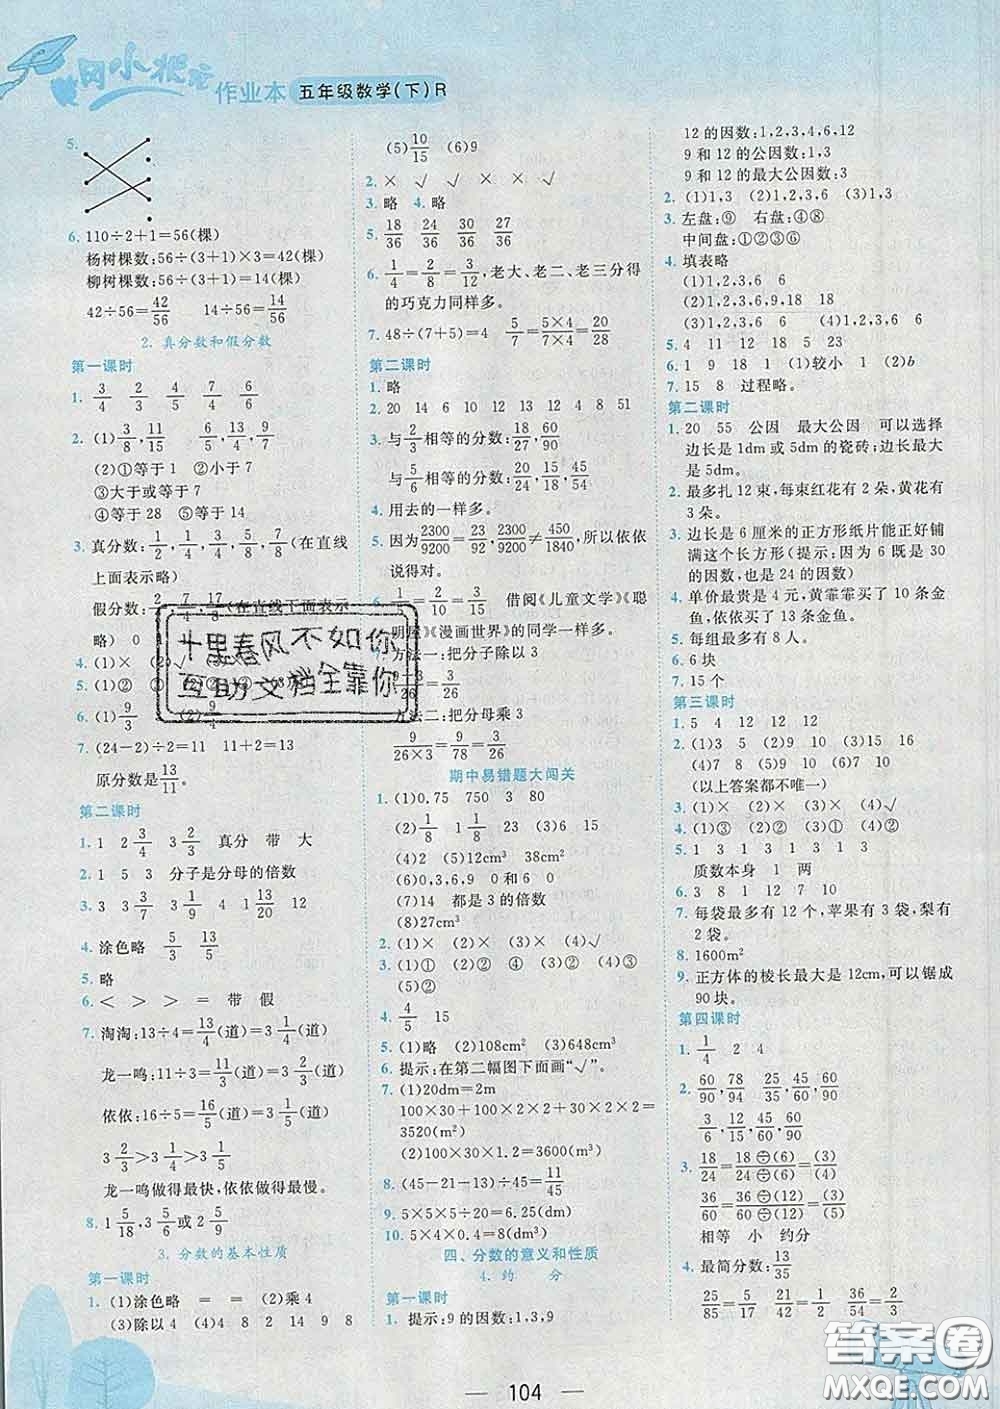 黄冈小状元
作业本 五年级数学(下)R
5.
6. 110÷2+1=56(棵)
杨树棵数:56÷(3+1)×3=42(棵)
柳树棵数:56÷(3+1)=14(棵)
42÷56=42/56 14÷56=14/56
2. 真分数和假分数
第一课时
1. 3/4 3/3 13/6 17/5
2. (1)3/8,11/15 6/5,13/4,9/7
(2)①等于1 ②小于7
③大于或等于7
④等于 28 ⑤等于 14
3. 真分数:1/2,1/4,5/8,7/8(在直线
上面表示略)
假分数:2/2,7/4,17/8(在直线下面表示
略) 0 1
4. (1)× (2)
5. (1)① (2)①
6. (1)9/3 3 (2)9/4
7. (24-2)÷2=11 11+2=13
原分数是13/11。
第二课时
1. 1 2 3/4 3 2/3 真分 带 大
2. 1 5 3 分子是分母的倍数
3. 3 3 3/7 4 1 13/20 12
4. 涂色略 5/3 13/5
5. 略
6. < > > = 带 假
7. 淘淘:13÷4=13/4(道)=3 1/4(道)
龙一鸣:11÷3=11/3(道)=3 2/3(道)
依依:16÷5=16/5(道)=3 1/5(道)
3 2/3>3 1/4>3 1/5
龙一鸣做得最快,依依做得最慢。
8. 1 5/18,3 5/9或2 5/9
3. 分数的基本性质
第一课时
1. (1)涂色略 = = (2)乘4
(3)除以4 (4)8 2 14 9 8
(5)10/15 (6)9
2. × √ √ × √
3. 略 4. 略
5. 18/36 24/36 30/36 27/36
6. 1/4=2/8=3/12,老大、老二、老三分得
的巧克力同样多。
7. 48÷(7+5)=4 5/7=5×4/7×4=20/28
第二课时
1. 略
2. 20 14 6 9 12 12 4 8 51
3. 与2/3相等的分数:18/27,60/90
与5/6相等的分数:20/24,15/18,45/54
4. 用去的一样多。
5. 因为2300/9200=23/92,2300/9200≠450/1840,所以依依
说得对。
6. 1/5=2/10=3/15 借阅《儿童文学》《聪
明屋》《漫画世界》的同学一样多。
7. 方法一:把分子除以3
9÷3/26=3/26
方法二:把分母乘3
9/26×3=9/78=3/26
期中易错题大闯关
1. (1)0.75 750 3 80
(2)1/8 1 1/8 23 (3)6 15
(4)2 (5)12cm³ 38cm²
(6)0,2,4,6,8 0和6 0
(7)14 都是3的倍数
(8)27cm³
2. (1)× (2)× (3)× (4)√
3. (1)① (2)② (3)④ (4)③
(5)②
4. 4/5 15
5. (1)略 (2)108cm² (3)648cm³
6. 提示:在第二幅图下面画“√”。
7. (1)20dm=2m
100×30+100×2×2+30×2×2=
3520(m²)
(2)100×30×1.2=3600(m³)
8. (45-21-13)÷45=11/45
9. 5×5×5÷20=6.25(dm)
10. 5×4×0.4=8(dm³)
四、分数的意义和性质
4. 约 分
第一课时
1. 提示:9的因数:1,3,9
12的因数:1,2,3,4,6,12
9和12的公因数:1,3
9和12的最大公因数:3
2. (1)1,3 (2)1,2,3,6 (3)1,3
3. 左盘:⑨ 右盘:④⑧
中间盘:①②③⑥
4. 填表略
(1)1,2,3,6 6
(2)1,2,3,6,9,18 18
(3)1,2,3,6 6
5. 4 11 12 18 5 23
6. 1 9 1 (1)较小 1 (2)b
7. 15 8 过程略。
第二课时
1. 20 55 公因 最大公因 可以选择
边长是1dm或5dm的瓷砖;边长最大
是5dm。
2. 最多扎12束,每束红花有2朵,黄花有
3朵。
3. 边长是6厘米的正方形纸片能正好铺
满这个长方形(提示:因为6既是30
的因数,也是24的因数)
4. 单价最贵是4元,黄霏霏买了10条金
鱼,依依买了13条金鱼。
5. 每组最多有8人。
6. 6块
7. 15个
第三课时
1. 5 4 12 12 12
2. (1)4 (2)9 (3)16
(4)7 8 (5)8 10 (6)7 9
(以上答案都不唯一)
3. (1)× (2)× (3)× (4)√
4. (1)③ (2)② (3)① (4)②
5. 1 3 1 3 1 3 1 3
质数本身 1 两
6. 3 8 1 12 7 10
7. 每袋最多有12个,苹果有3袋,梨有
2袋。
8. 1600m²
9. 正方体的棱长最大是12cm,可以锯成
90块。
第四课时
1. 1/4 2 4
2. 60/90,78/94 35/60,45/90
3/6,12/15,45/60,60/90
3. 18/24=18÷(6)/24÷(6)=(3)/(4)
36/60=36÷(12)/60÷(12)=(3)/(5)
相等 小 约分
4. 最简分数:13/35
25/85=5/17 2/12=1/6 36/54=2/3
十里春风不如你
互助文档全靠你
104
答案圈
MXQE.COM